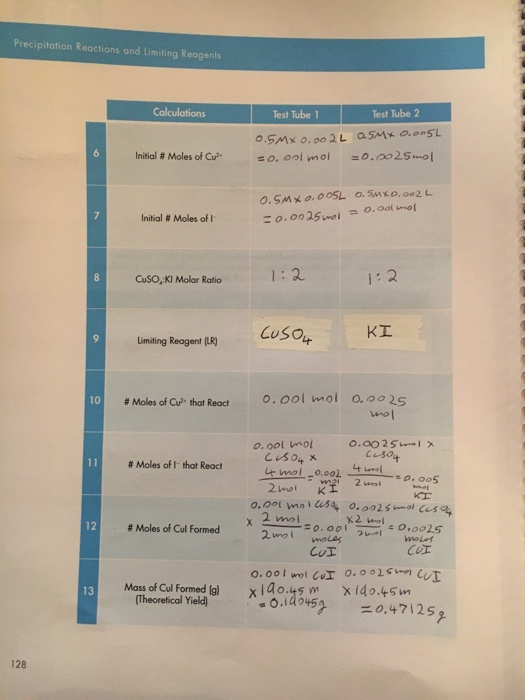 Precipitation Reactions and Limiting Reagents
Calculations Test Tube 1 Test Tube 2
6 Initial # Moles of Cu²⁺
0.5M x 0.002L 0.5M x 0.005L
= 0.001 mol = 0.0025mol
7 Initial # Moles of I⁻
0.5M x 0.005L 0.5M x 0.002L
= 0.0025mol = 0.001mol
8 CuSO₄:KI Molar Ratio 1:2 1:2
9 Limiting Reagent (LR) CuSO₄ KI
10 # Moles of Cu²⁺ that React 0.001 mol 0.0025
mol
11 # Moles of I⁻ that React
0.001 mol 0.0025mol x
CuSO₄ x CuSO₄
4 mol = 0.002 4 mol = 0.005
2 mol mol KI 2 mol mol KI
12 # Moles of CuI Formed
0.001 mol CuSO₄ 0.0025mol CuSO₄
x 2 mol = 0.001 x 2 mol = 0.0025
2 mol moles 2 mol moles
CuI CuI
13 Mass of CuI Formed (g)
(Theoretical Yield)
0.001 mol CuI 0.0025mol CuI
x 190.45 m x 190.45m
= 0.19045g = 0.47125g
128